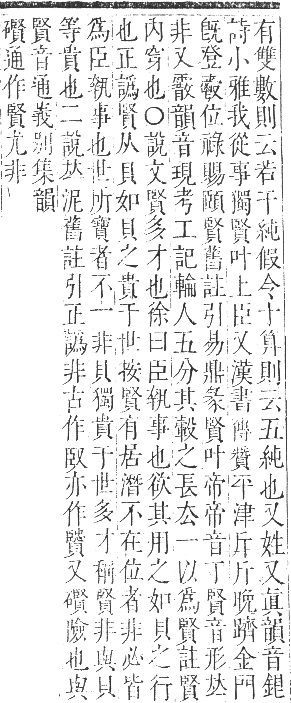 有雙數則云若干純假令十算則云五純也又姓又眞韻音鋥
詩小雅我從事獨賢叶上臣又漢書傳贊平津斥斤晚躋金門
旣登爵位祿賜頤賢舊註引易鼎彖賢叶帝帝音丁賢音形𠀤
非又霰韻音現考工記輪人五分其轂之長厺一以爲賢註賢
內穿也〇說文賢多才也徐曰臣執事也欲其用之如貝之行
也正譌賢从貝如貝之貴于世按賢有居潛不在位者非必皆
爲臣執事也世所寶者不一非貝獨貴于世多才稱賢非與貝
等貴也二說𠀤泥舊註引正譌非古作臤亦作贒又礥險也與
賢音通義別集韻
礥通作賢尤非